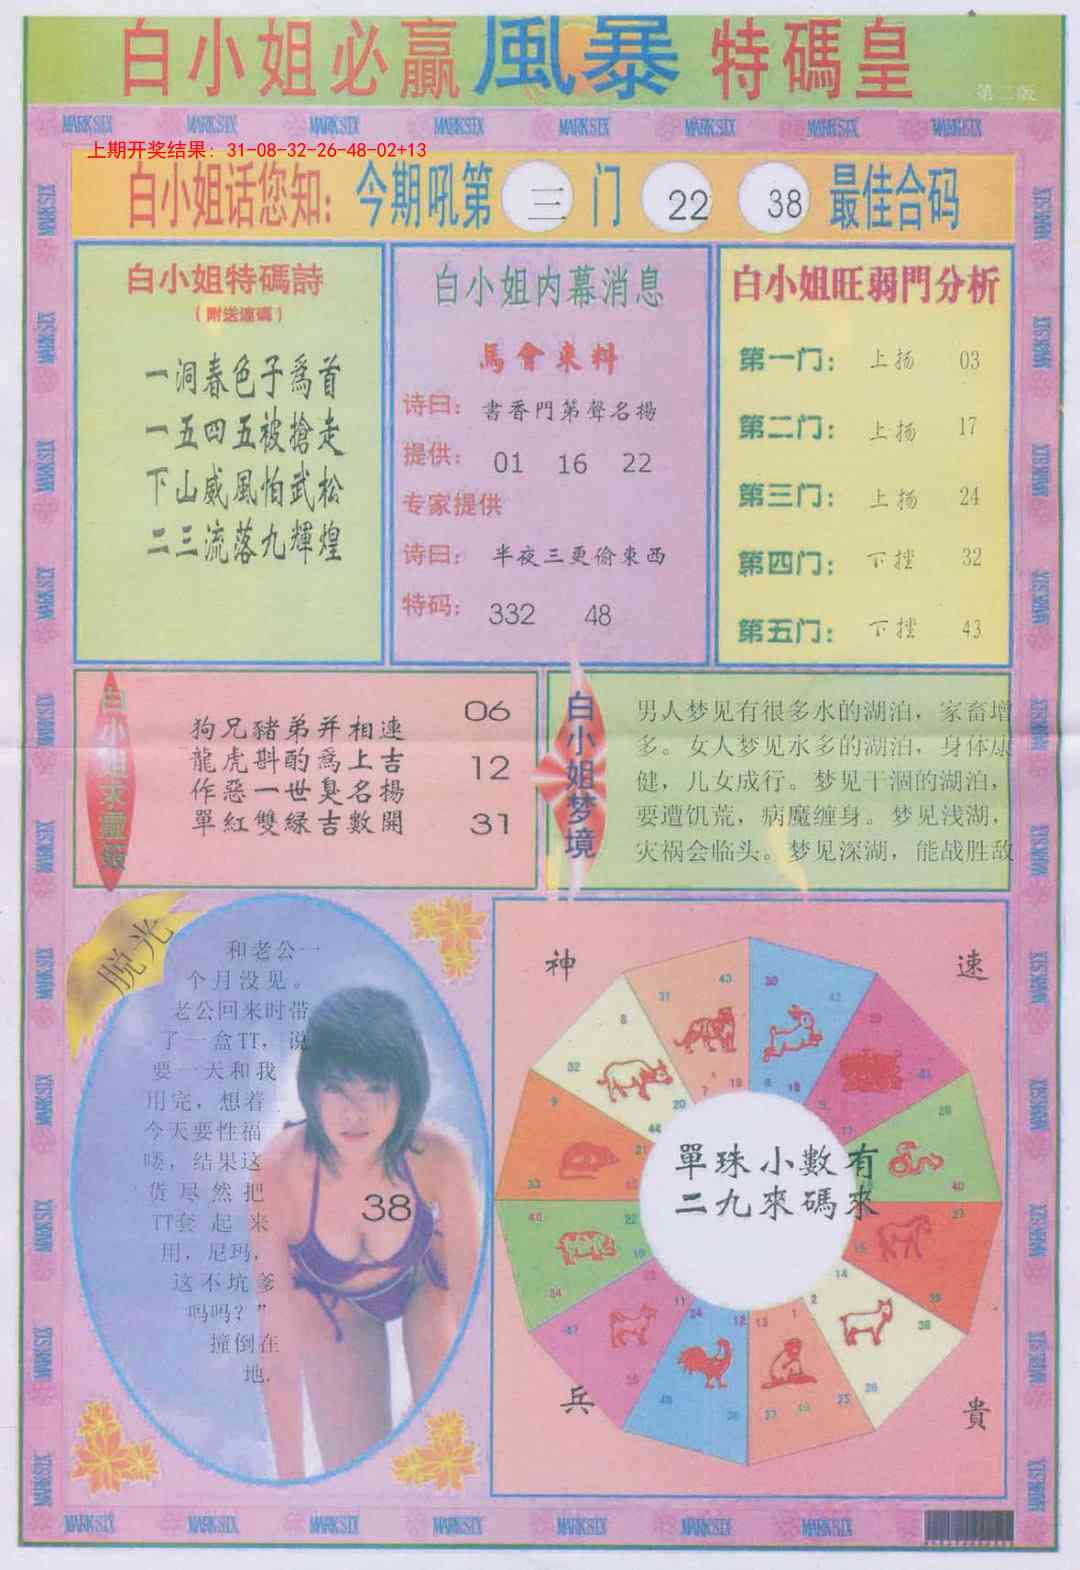 白小姐必贏風暴特碼皇
第二版
MARKSIX MARKSIX MARKSIX MARKSIX MARKSIX MARKSIX MARKSIX MARKSIX
上期开奖结果: 31-08-32-26-48-02+13
白小姐话您知: 今期吼第 三 门 22 38 最佳合码
白小姐特碼詩
(附送連碼)
一洞春色子爲首
一五四五被搶走
下山威風怕武松
二三流落九輝煌
白小姐内幕消息
馬會來料
诗曰: 書香門第聲名揚
提供: 01 16 22
专家提供
诗曰: 半夜三更偷東西
特码: 332 48
白小姐旺弱門分析
第一门: 上扬 03
第二门: 上扬 17
第三门: 上扬 24
第四门: 下挫 32
第五门: 下挫 43
白小姐求靈籤
狗兄豬弟并相連 06
龍虎斟酌爲上吉 12
作惡一世臭名楊
單紅雙緑吉數開 31
白小姐梦境
男人梦见有很多水的湖泊，家畜增
多。女人梦见水多的湖泊，身体康
健，儿女成行。梦见干涸的湖泊，
要遭饥荒，病魔缠身。梦见浅湖，
灾祸会临头。梦见深湖，能战胜敌
脱光
和老公一
个月没见。
老公回来时带
了一盒TT，说
要一天和我
用完，想着
今天要性福
喽，结果这
货尽然把
TT套起来
用，尼玛，
这不坑爹
吗吗？”
撞倒在
地.
38
神 速
單珠小數有
二九來碼來
兵 貴
MARKSIX MARKSIX MARKSIX MARKSIX MARKSIX MARKSIX MARKSIX